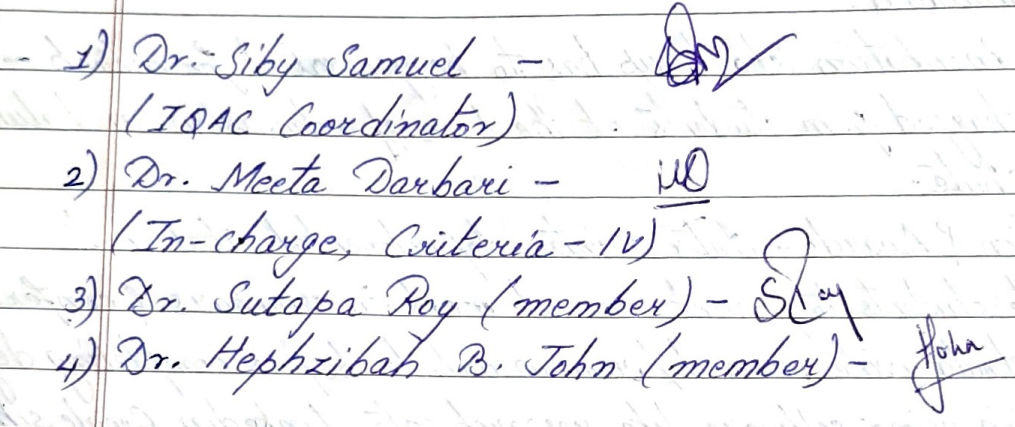 1) Dr. Siby Samuel -
(IQAC Coordinator)
2) Dr. Meeta Darbari - MD
(In-charge, Criteria - IV)
3) Dr. Sutapa Roy (member) - SRay
4) Dr. Hephzibah B. John (member) - HJohn